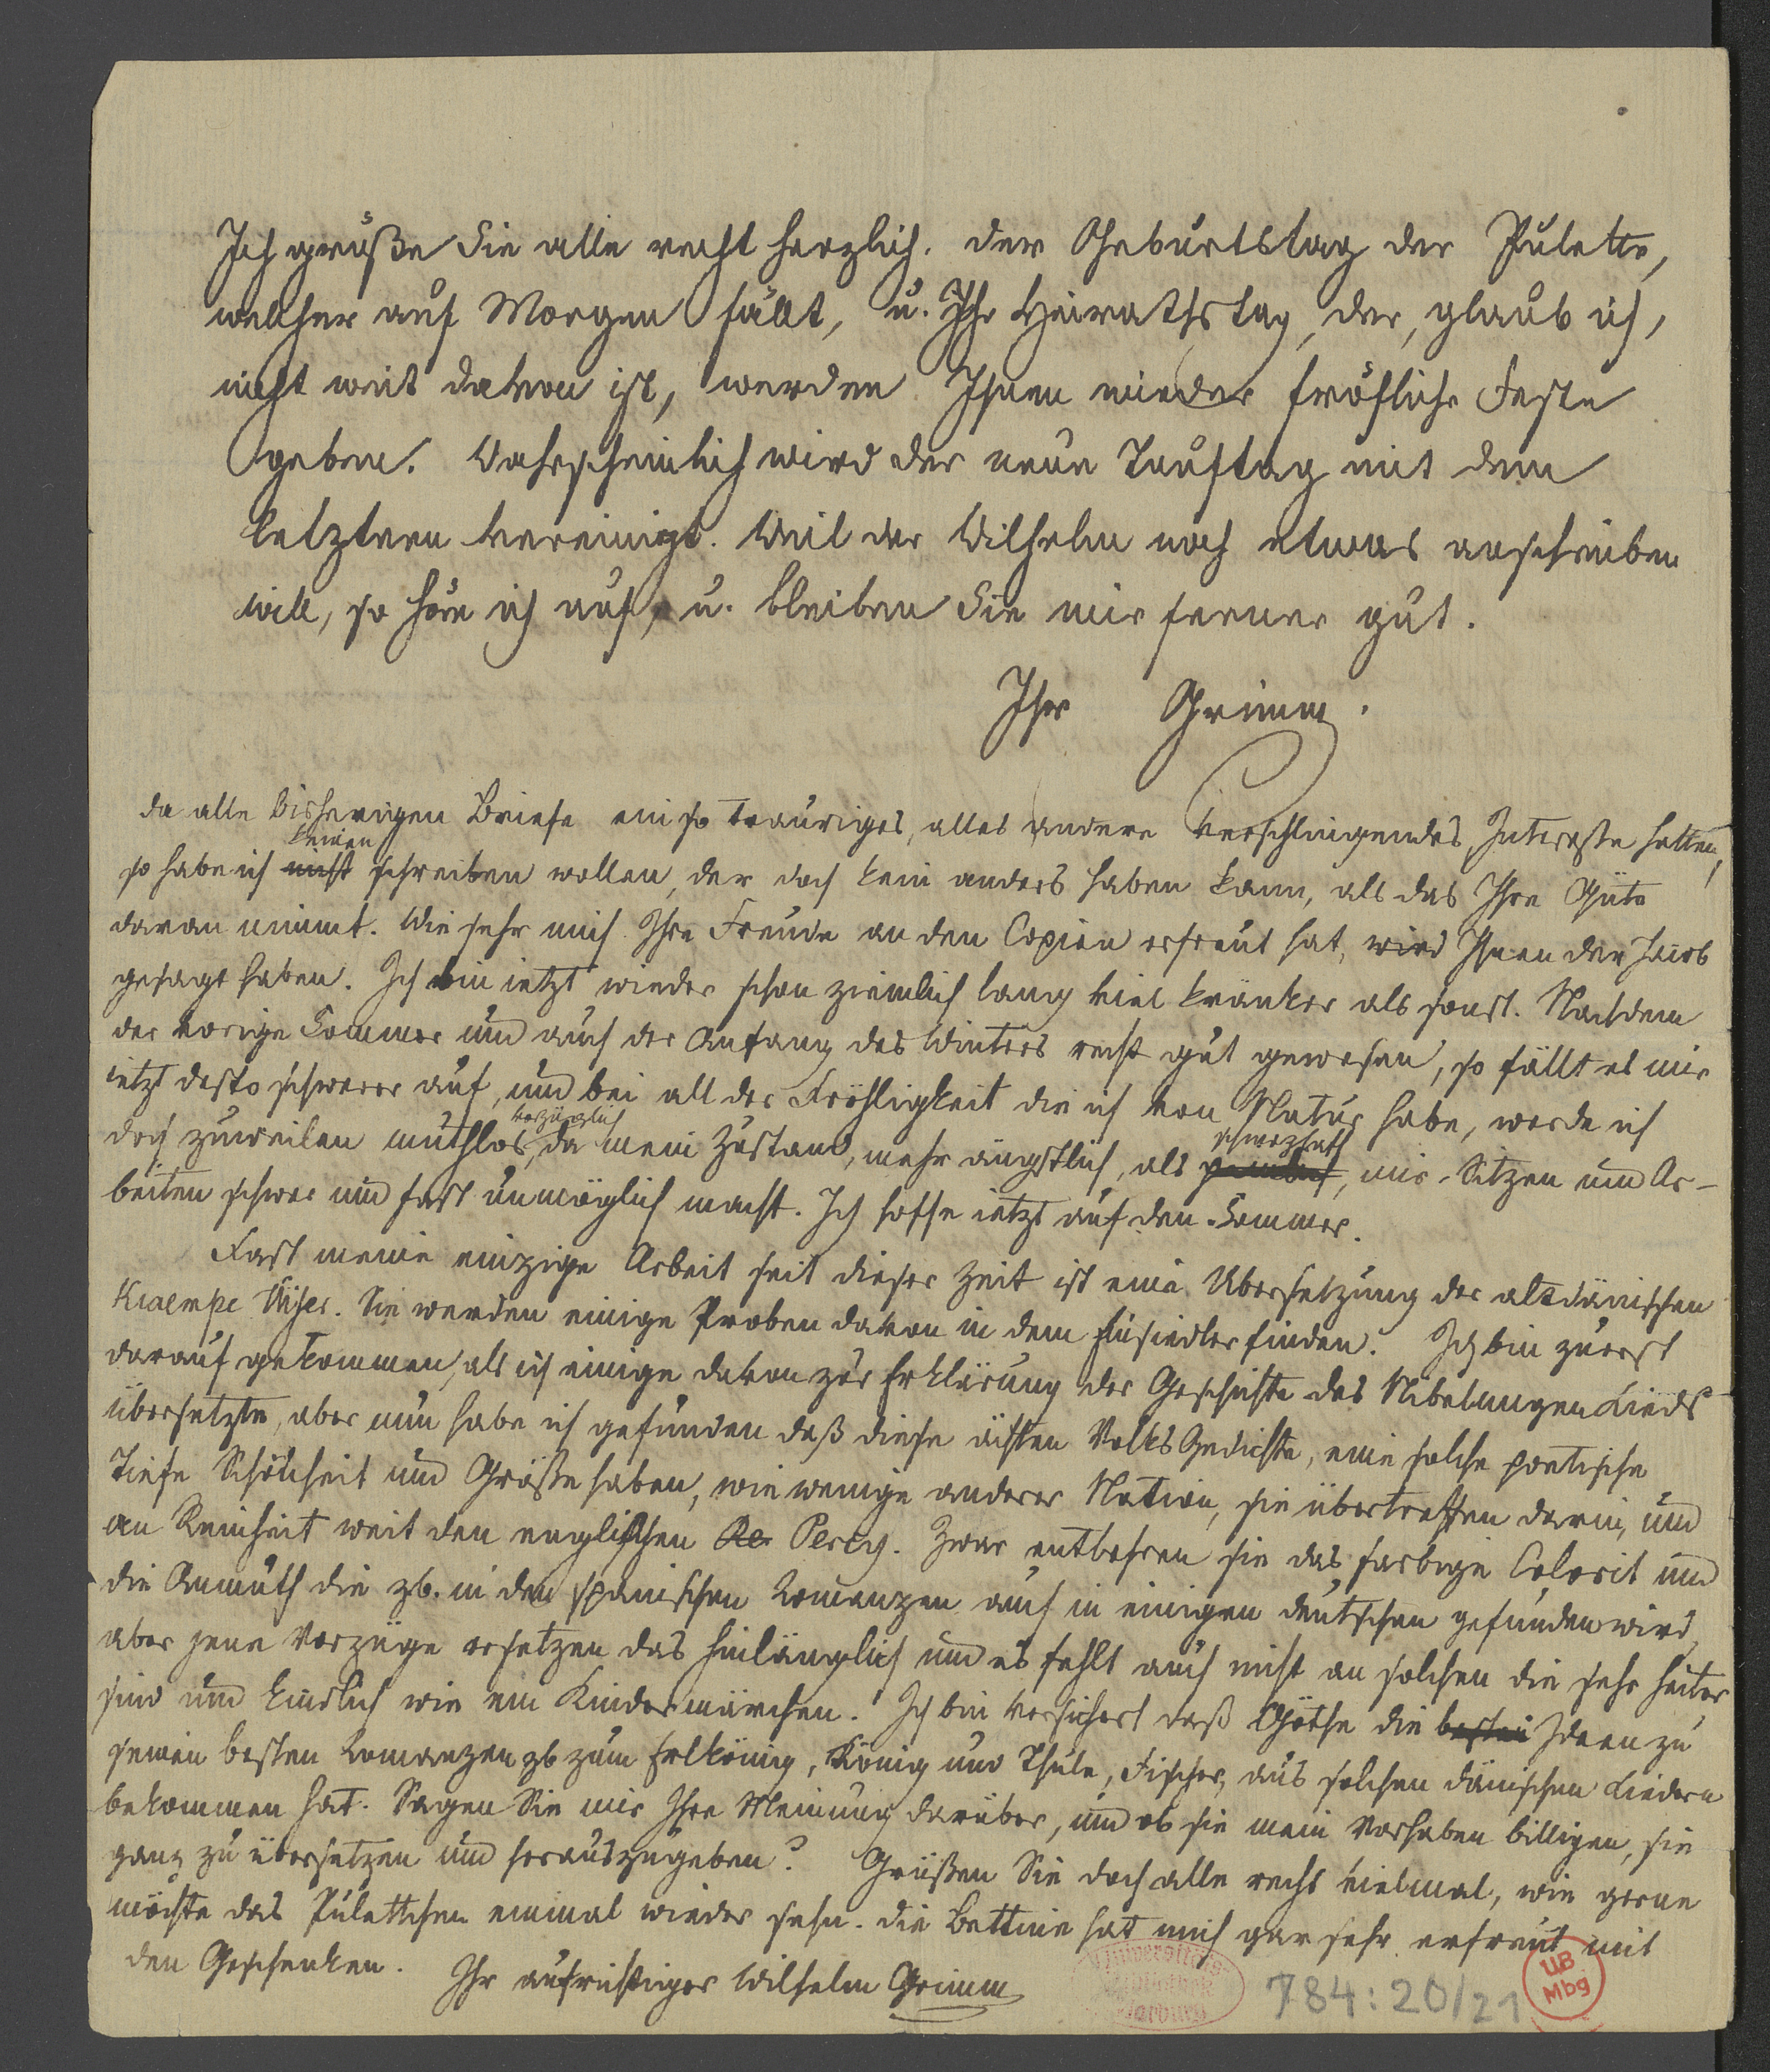 Ich grüße Sie alle recht herzlich. Der Geburtstag der Pulette,
welcher auf Morgen fällt, u. Ihr Heirathstag, der, glaub ich,
nicht weit davon ist, werden Ihnen wieder fröhliche Feste
geben. Wahrscheinlich wird der neue Tauftag mit dem
letztern vereinigt. Weil der Wilhelm noch etwas anschreiben
will, so höre ich auf, u. bleiben Sie mir ferner gut.
Ihr Grimm.
Da alle bisherigen Briefe ein so trauriges, alles andere verschlingendes Interesse hatten,
keinen
so habe ich nicht schreiben wollen, der doch kein anders haben kann, als das Ihre Güte
daran nimmt. Wie sehr mich Ihre Freude an den Copien erfreut hat, wird Ihnen der Jacob
gesagt haben. Ich bin ietzt wieder schon ziemlich lang viel kränker als sonst. Nachdem
der vorige Sommer und auch der Anfang des Winters recht gut gewesen, so fällt es mir
ietzt desto schwerer auf, und bei all der Fröhligkeit die ich von Natur habe, werde ich
vorzüglich schmerzhaft
doch zuweilen muthlos, da mein Zustand, mehr ängstlich, als, mir Sitzen und Ar-
beiten schwer und fast unmöglich macht. Ich hoffe ietzt auf den Sommer.
Fast meine einzige Arbeit seit dieser Zeit ist eine Übersetzung der altdänischen
Kraempe Viser. Sie werden einige Proben davon in dem Einsiedler finden. Ich bin zuerst
darauf gekommen, als ich einige davon zur Erklärung der Geschichte des Nibelungen Lieds
übersetzte, aber nun habe ich gefunden daß diese ächten Volks Gedichte, eine solche poetische
Tiefe Schönheit und Größe haben, wie wenige anderer Nation, sie übertreffen darin, und
an Reinheit weit den englischen Re Percy. Zwar entbehren sie das farbige Colorit und
die Anmuth die zb. in den spanischen Romanzen auch in einigen deutschen gefunden wird,
aber jene Vorzüge ersetzen das hinlänglich und es fehlt auch nicht an solchen die sehr heiter
sind und kindlich wie ein Kindermärchen. Ich bin versichert daß Göthe die besten Ideen zu
seinen besten Romanzen zb zum Erlkönig, König und Thule, Fischer, aus solchen dänischen Liedern
bekommen hat. Sagen Sie mir Ihre Meinung darüber, und ob sie mein Vorhaben billigen, sie
ganz zu übersetzen und herauszugeben? Grüßen Sie doch alle recht vielmal, wie gerne
möchte das Pulettchen einmal wieder sehn. Die Bettine hat mich gar sehr erfreut mit
den Geschenken. Ihr aufrichtiger Wilhelm Grimm
Universitäts-
Bibliothek
Marburg
784:20/21
UB
Mbg